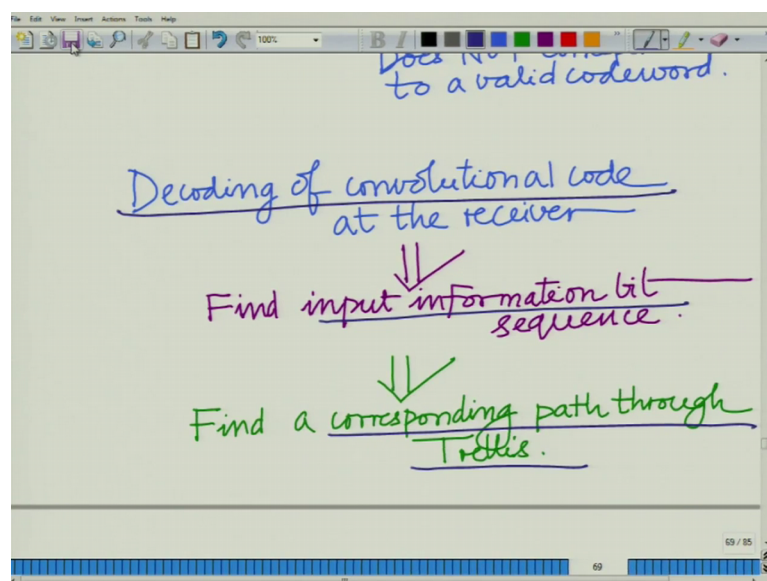 File Edit View Insert Actions Tools Help
100%
B I
Does NOT
to a valid codeword.
Decoding of convolutional code
at the receiver
Find input information bit
sequence.
Find a corresponding path through
Trellis.
69 / 85
69